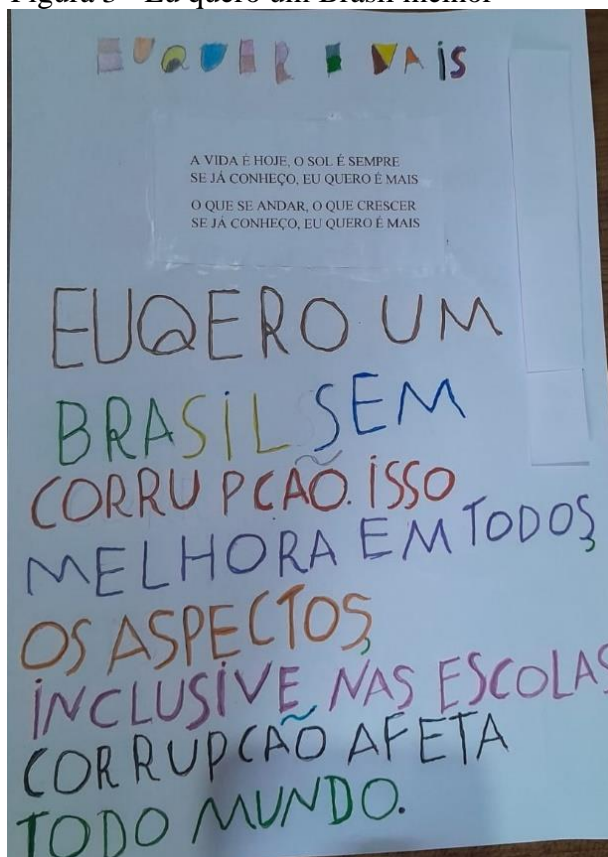 Figura 3 - Eu quero um Brasil melhor
EUQUER E MAIS
A VIDA É HOJE, O SOL É SEMPRE
SE JÁ CONHEÇO, EU QUERO É MAIS
O QUE SE ANDAR, O QUE CRESCER
SE JÁ CONHEÇO, EU QUERO É MAIS
EUQERO UM
BRASIL SEM
CORRUPCAÕ. ISSO
MELHORA EM TODOS
OS ASPECTOS,
INCLUSIVE NAS ESCOLAS
CORRUPCAÕ AFETA
TODO MUNDO.